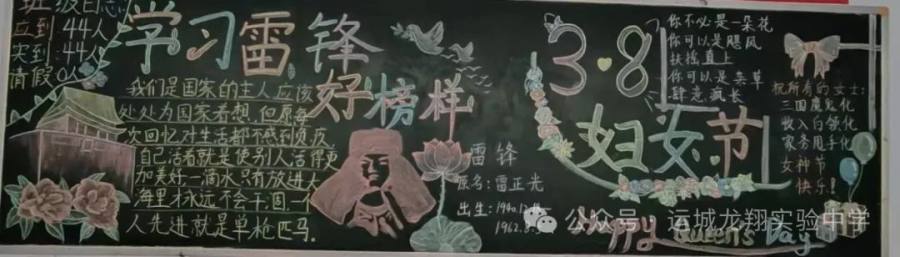 班级日志
应到:44人
实到:44人
请假0人
学习雷锋
好榜样
我们是国家的主人应该
处处为国家着想,但愿每
次回忆,对生活都不感到负疚
自己活着就是使别人活得更
加美好一滴水只有放进大
海里才永远不会干涸一个
人先进就是单枪匹马.
雷锋
原名:雷正光
出生:1940.12.18
1962.8.
3·8
妇女节
你不必是一朵花
你可以是飓风
扶摇直上
你可以是杂草
肆意疯长
祝所有的女士:
三围魔鬼化
收入白领化
家务甩手化
女神节
快乐!
Happy Queen's Day
公众号 运城龙翔实验中学